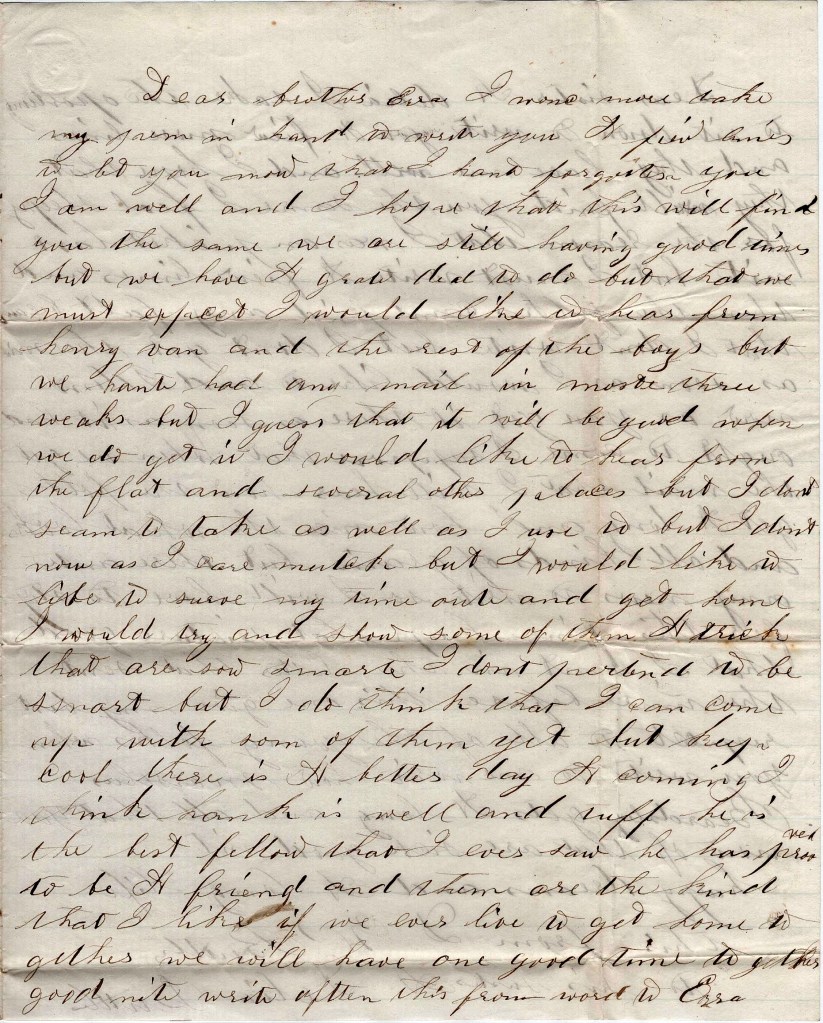 Dear brother Ezra I wonc more take
my pem in hand to write you A few lines
to let you now that I hant forgoten you
I am well and I hope that this will find
you the same we are still having good times
but we have A grate deal to do but that we
must expect I would like to hear from
henry van and the rest of the boys but
we hante had any mail in moste three
weaks but I guess that it will be good when
we do get it I would like to hear from
the flat and several other places but I dont
seam to take as well as I use to but I don't
now as I care mutch but I would like to
live to surve my time oute and get home
I would try and show some of them A trick
that are sow smarte I dont pertend to be
smart but I do think that I can come
up with som of them yet but keep
cool there is A better day A coming I
think hank is well and tuff he is
the best fellow that I ever saw he has proved
to be A friend and them are the kind
that I like if we ever live to get home to
gether we will have one good time to gether
good nite write oftten this from word to Ezra